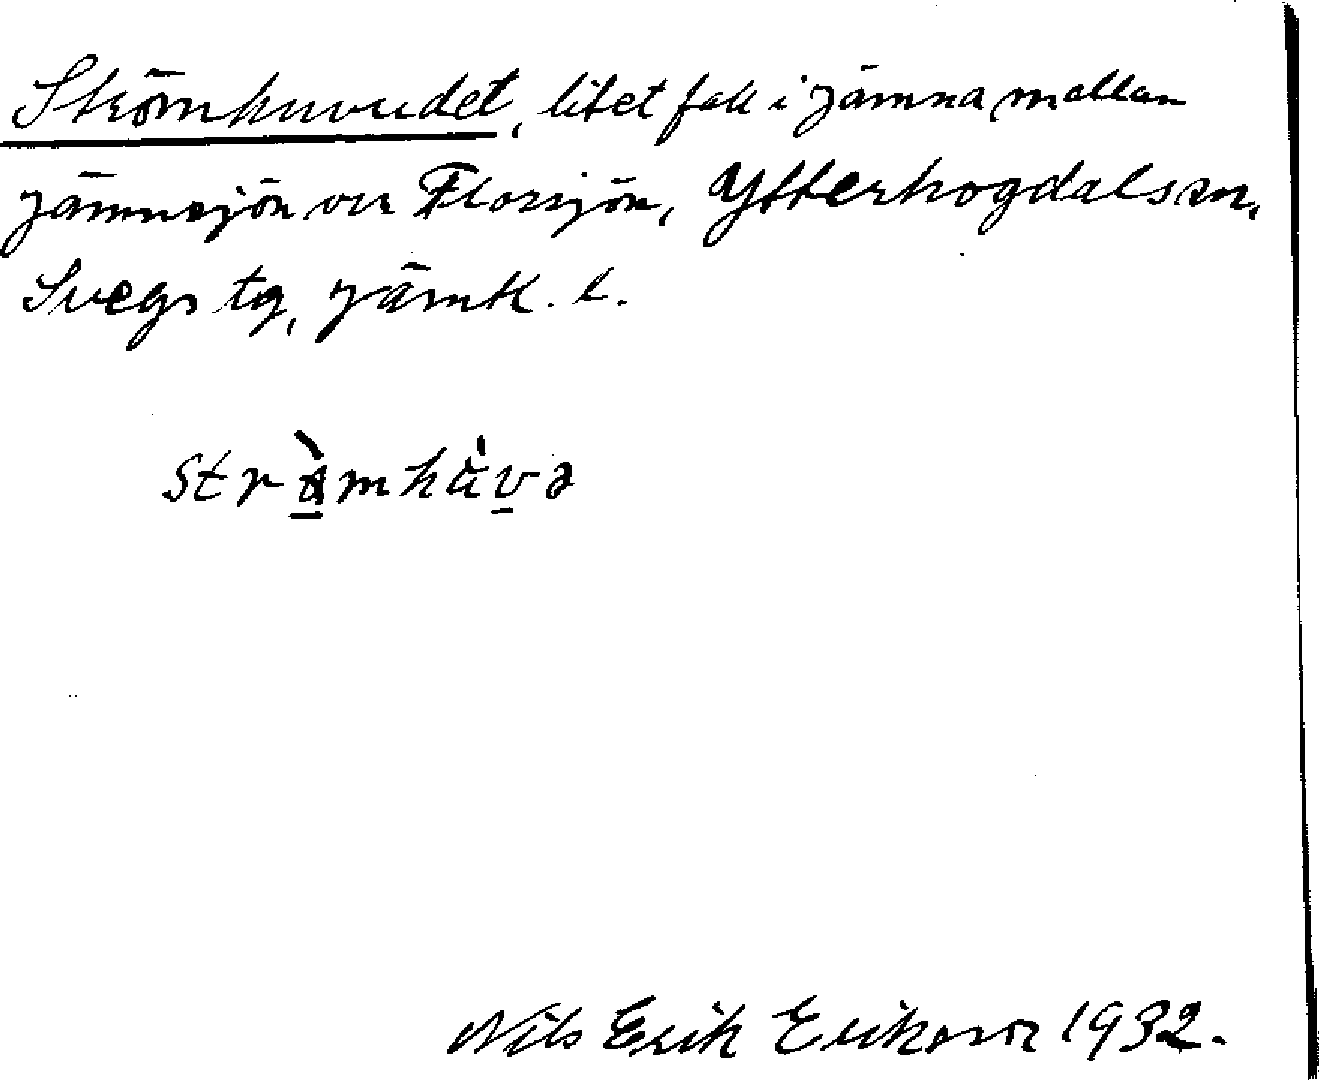 Strömhuvudet, litet fall i Jämna mellan
Jämnsjön och Florsjön, Ytterhogdals sn,
Svegs tg, Jämtl. l.
strǻ̱mhùv̱ə
Nils Erik Erikson 1932.